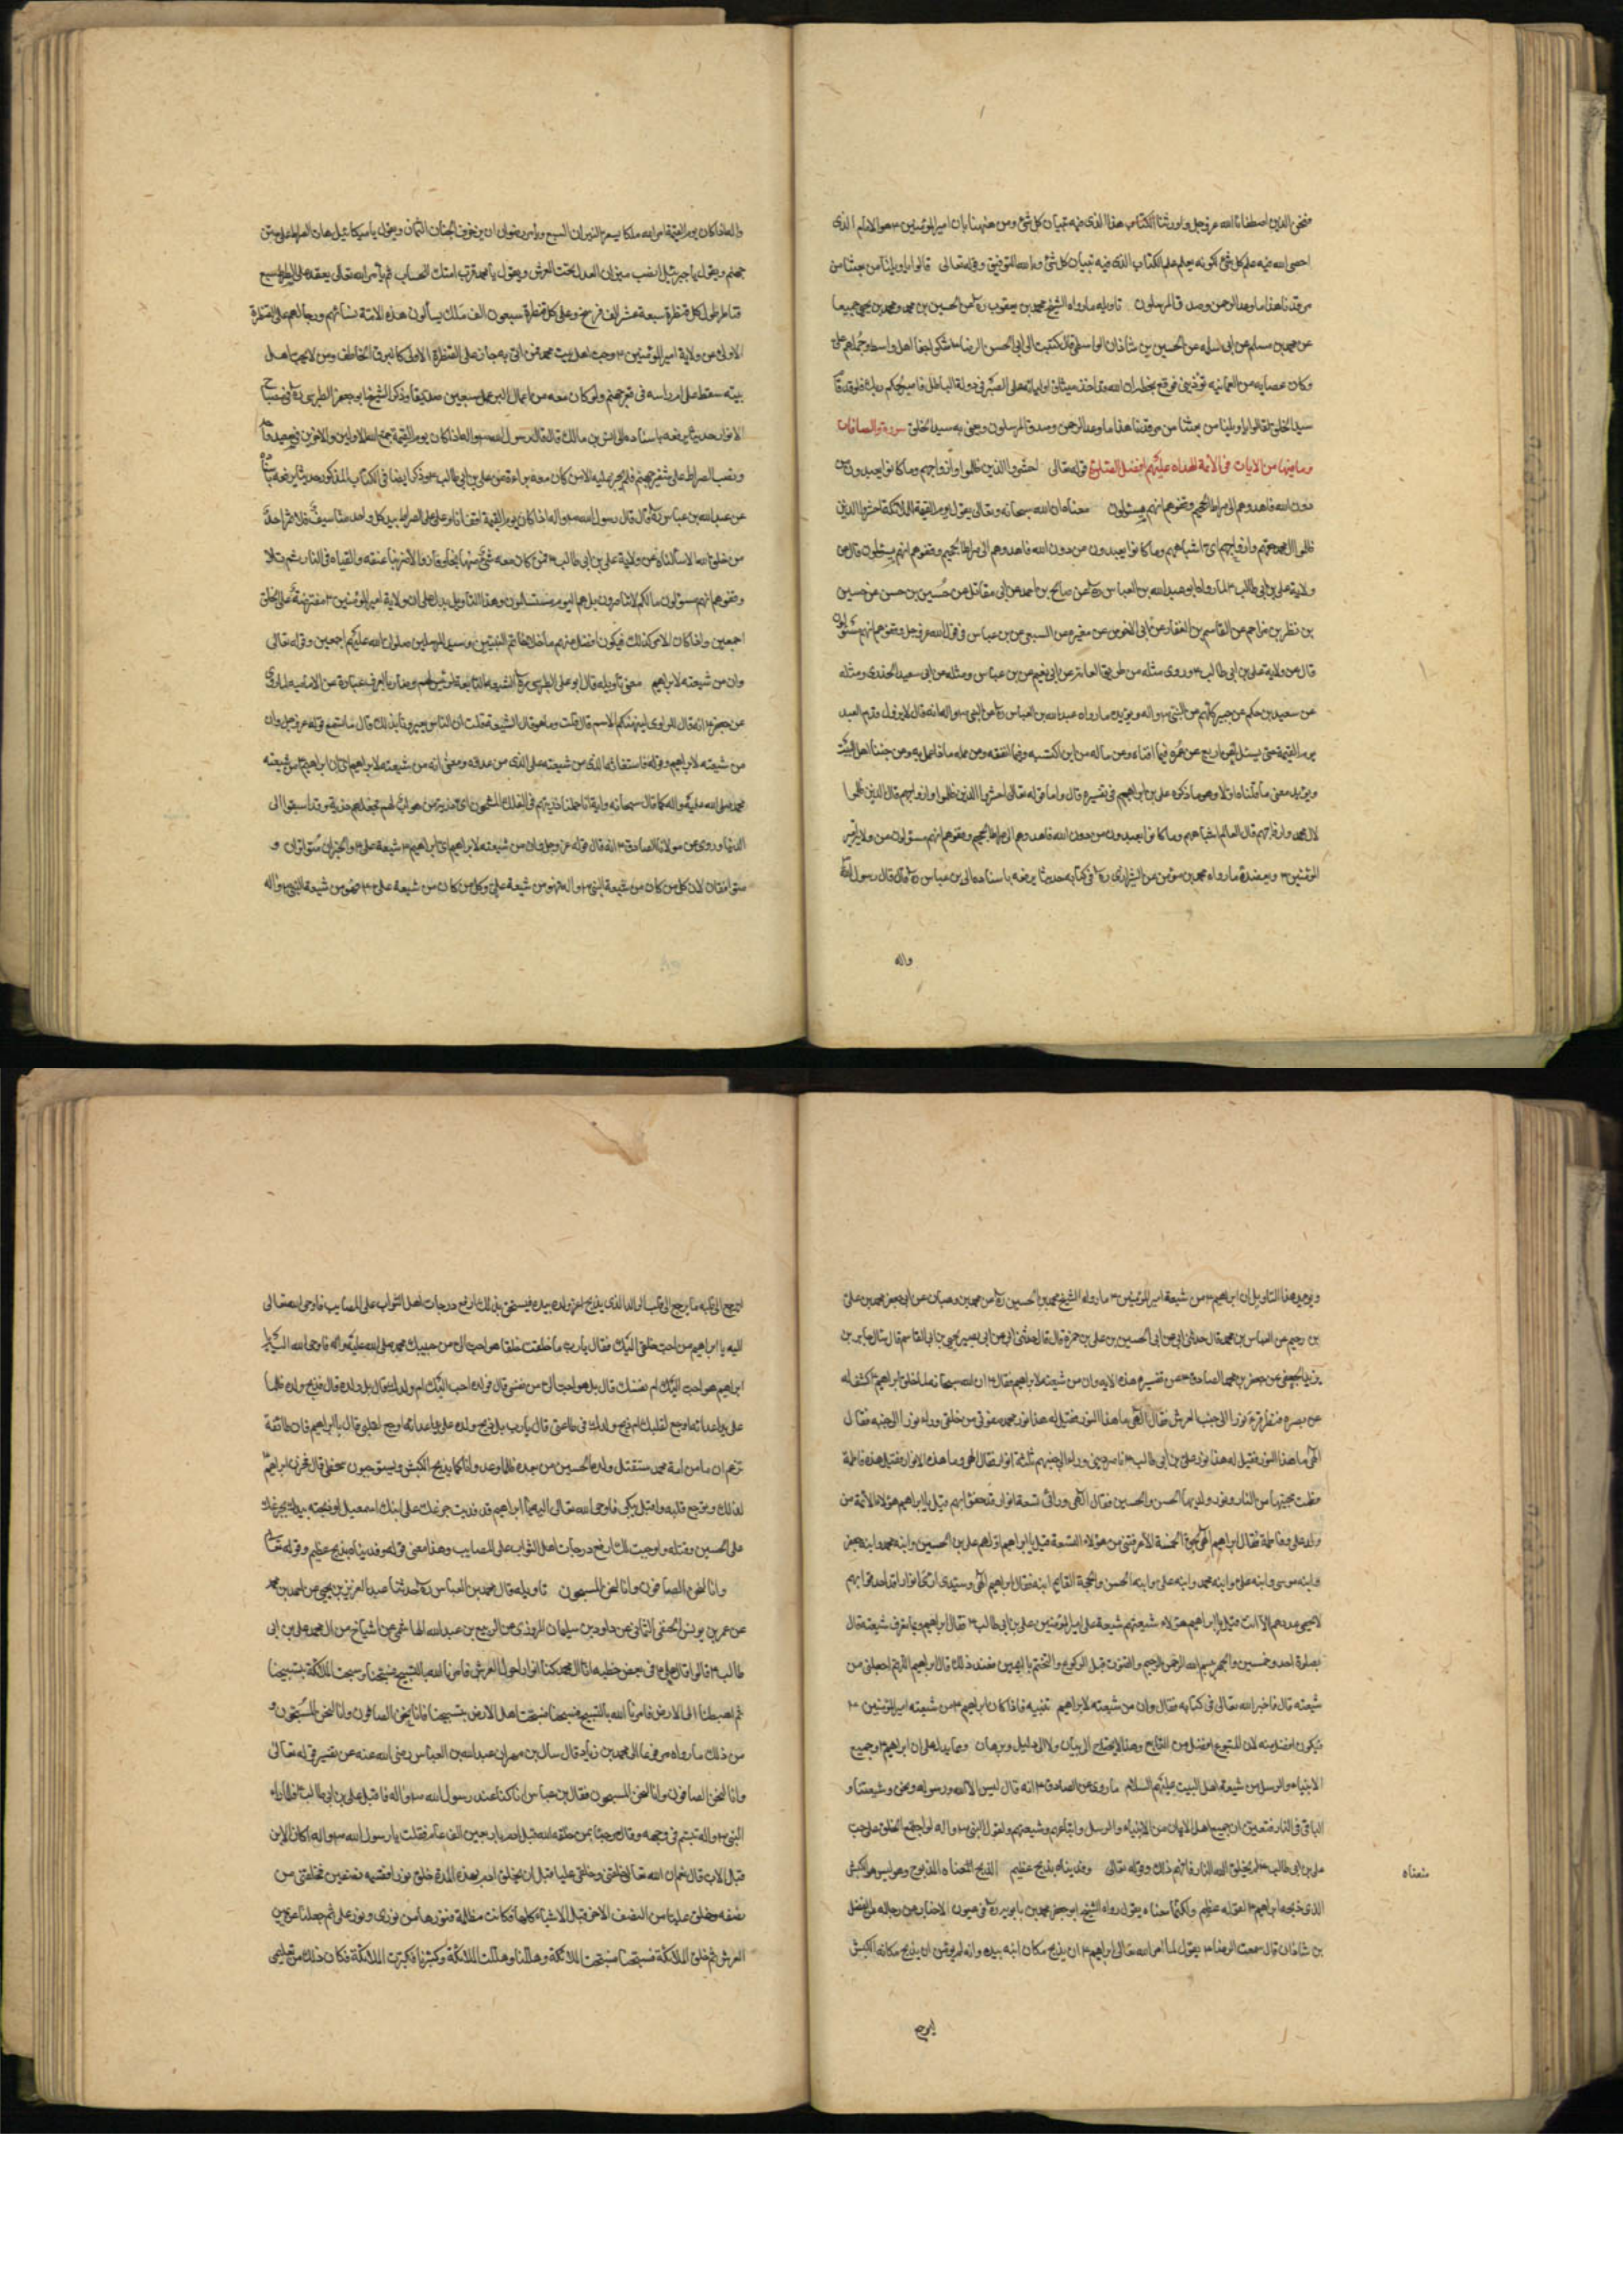 فنحن الذين اصطفانا الله عز وجل واورثنا الكتاب هذا الذى فيه تبيان كل شئ ومن ههنا بان امير المؤمنين ع هو الامام الذى
احصى الله فيه علم كل شئ لكونه يعلم علم الكتاب الذى فيه تبيان كل شئ وبالله التوفيق وقوله تعالى قالوا يا ويلنا من بعثنا من
مرقدنا هذا ما وعد الرحمن وصدق المرسلون تاويله ما رواه الشيخ محمد بن يعقوب ره عن الحسين بن محمد ومحمد بن يحيى جميعا
عن محمد بن سالم عن ابى سلمه عن الحسين بن شاذان الواسطى قال كتبت الى ابى الحسن الرضا ع اشكو جفا اهل واسط وجهلهم على
وكان عصابه من العثمانيه توذينى فوقع بخطه ان الله قد اخذ ميثاق اوليائه على الصبر فى دولة الباطل فاصبر لحكم ربك فلو قد قام
سيد الخلق لقالوا يا ويلنا من بعثنا من مرقدنا هذا ما وعد الرحمن وصدق المرسلون ويعنى به سيد الخلق سورة والصافات
وما فيها من الايات فى الائمة الهداه عليهم افضل الصلوة قوله تعالى احشروا الذين ظلموا وازواجهم وما كانوا يعبدون من
دون الله فاهدوهم الى صراط الجحيم وقفوهم انهم مسئولون معناه ان الله سبحانه وتعالى يقول يوم القيمة للملائكة احشروا الذين
ظلموا ال محمد حقهم وازواجهم اى اشباههم وما كانوا يعبدون من دون الله فاهدوهم الى صراط الجحيم وقفوهم انهم مسئولون قال عن
ولاية على بن ابى طالب ع لما رواه ابو عبد الله بن العباس ره عن صالح بن احمد عن ابى مقاتل عن حسين بن حسن عن حسين
بن نظر بن مزاحم عن القاسم بن الغفار عن ابى الاحوص عن مغيره عن الشعبى عن بن عباس فى قول الله عز وجل وقفوهم انهم مسئولون
قال عن ولاية على بن ابى طالب ع وروى مثله من طريق العامة عن ابى نعيم عن بن عباس ومثله عن ابى سعيد الخدرى ومثله
عن سعيد بن جبير كلهم عن النبى ص واله ويؤيده ما رواه عبد الله بن العباس ره عن النبى ص واله انه قال لا يزول قدم العبد
يوم القيمة حتى يسئل عن اربع عن عمره فيما افناه وعن ماله من اين اكتسبه وفيما انفقه وعن عمله ماذا عمل به وعن حبنا اهل البيت
ويؤيد معنى ما قلناه اولا وهو ما ذكره على بن ابراهيم فى تفسيره قال واما قوله تعالى احشروا الذين ظلموا وازواجهم قال الذين ظلموا
ال محمد وازواجهم قال اشباههم وما كانوا يعبدون من دون الله فاهدوهم الى صراط الجحيم وقفوهم انهم مسئولون عن ولاية امير
المؤمنين ع ويعضده ما رواه محمد بن مؤمن الشيرازى ره فى كتابه حديثا يرفعه باسناده الى بن عباس ره قال قال رسول الله
واله
واله اذا كان يوم القيمة امر الله ملكا يسعر النيران السبع ويامر رضوان ان يزخرف الجنان الثمان ويقول يا ميكائيل هات الصراط على متن
جهنم ويقول يا جبرئيل انصب ميزان العدل تحت العرش ويقول يا محمد قرب امتك للحساب ثم يامر الله تعالى يعقد على الصراط سبع
قناطر طول كل قنطرة سبعة عشر الف فرسخ وعلى كل قنطرة سبعون الف ملك يسألون هذه الامة نسائهم ورجالهم على القنطرة
الاولى عن ولاية امير المؤمنين ع وحب اهل بيت محمد فمن اتى به جاز على القنطرة الاولى كالبرق الخاطف ومن لا يحب اهل
بيته سقط على ام راسه فى قعر جهنم ولو كان معه من اعمال البر عمل سبعين صديقا وذكر الشيخ ابو جعفر الطوسى ره فى مصباح
الانوار حديثا يرفعه باسناده الى انس بن مالك قال قال رسول الله ص واله اذا كان يوم القيمة جمع الله الاولين والاخرين فى صعيد واحد
ونصب الصراط على شفير جهنم فلم يجز عليه الا من كان معه براءة من على بن ابى طالب ع وذكر ايضا فى الكتاب المذكور حديثا يرفعه باسناده
عن عبد الله بن عباس ره قال قال رسول الله ص واله اذا كان يوم القيمة اقف انا وعلى على الصراط بيد كل واحد منا سيف فلا يمر احد
من خلق الله الا سألناه عن ولاية على بن ابى طالب ع فمن كان معه شئ منها نجا وفاز والا ضربنا عنقه والقيناه فى النار ثم تلا
وقفوهم انهم مسئولون مالكم لا تناصرون بل هم اليوم مستسلمون وهذا التاويل يدل على ان ولاية امير المؤمنين ع مفترضة على الخلق
اجمعين واذا كان الامر كذلك فيكون افضل منهم ما خلا خاتم النبيين وسيد المرسلين صلوات الله عليهم اجمعين وقوله تعالى
وان من شيعته لابراهيم معنى تاويله قال ابو على الطبرسى ره الشيعة الجماعة التابعة لرئيس لهم وصار بالعرف عبارة عن الامامية لما روى
عن ابى جعفر ع انه قال للراوى ليهنئكم الاسم قال قلت وما هو قال الشيعة قلت ان الناس يعيرونا بذلك قال ما تسمع قوله عز وجل وان
من شيعته لابراهيم وقوله فاستغاثه الذى من شيعته على الذى من عدوه ومعنى انه من شيعته لابراهيم اى ان ابراهيم ع من شيعته
محمد صلى الله عليه واله كما قال سبحانه واية انا حملنا ذريتهم فى الفلك المشحون اى ذرية من هو اب لهم فجعلهم ذرية وقد سبقوا الى
الدنيا وروى عن مولانا الصادق ع انه قال قوله عز وجل وان من شيعته لابراهيم اى ابراهيم ع شيعة على ع والخبران متوازيان و
متوافقان لان كل من كان من شيعة النبى ص واله فهو من شيعة على وكل من كان من شيعة على ع فهو من شيعة النبى ص واله
ويؤيد هذا التاويل ان ابراهيم ع من شيعة امير المؤمنين ع ما رواه الشيخ محمد بن الحسين ره عن محمد بن وهبان عن ابى جعفر محمد بن على
بن رحيم عن العباس بن محمد قال حدثنى ابى عن ابى الحسين بن على بن حمزة قال قال حدثنى ابى عن ابى بصير يحيى بن ابى القاسم قال سال جابر بن
يزيد الجعفى عن جعفر بن محمد الصادق ع عن تفسير هذه الايه وان من شيعته لابراهيم فقال ع ان الله سبحانه لما خلق ابراهيم ع كشف له
عن بصره فنظر فراى نورا الى جنب العرش فقال الهى ما هذا النور فقيل له هذا نور محمد صفوتى من خلقى وراى نورا الى جنبه فقال
الهى ما هذا النور فقيل له هذا نور على بن ابى طالب ع ناصر دينى وراى الى جنبهم ثلثة انوار فقال الهى وما هذه الانوار فقيل هذه فاطمة
فطمت محبيها من النار ونور ولديها الحسن والحسين فقال الهى وراى تسعة انوار قد حفوا بهم قيل يا ابراهيم هؤلاء الائمة من
ولد على وفاطمة فقال ابراهيم الهى بحق الخمسة الا عرفتنى من هؤلاء التسعة قيل يا ابراهيم اولهم على بن الحسين وابنه محمد وابنه جعفر
وابنه موسى وابنه على وابنه محمد وابنه على وابنه الحسن والحجة القائم ابنه فقال ابراهيم الهى وسيدى ارى انوارا قد احدقوا بهم
لا يحصى عددهم الا انت قيل يا ابراهيم هؤلاء شيعتهم شيعة على امير المؤمنين على بن ابى طالب ع فقال ابراهيم وبما تعرف شيعته قال
بصلوة احد وخمسين والجهر ببسم الله الرحمن الرحيم والقنوت قبل الركوع والتختم باليمين فعند ذلك قال ابراهيم اللهم اجعلنى من
شيعته قال فاخبر الله تعالى فى كتابه فقال وان من شيعته لابراهيم تنبيه فاذا كان ابراهيم ع من شيعته امير المؤمنين ع
فيكون افضل منه لان المتبوع افضل من التابع وهذا لا يحتاج الى بيان ولا الى دليل وبرهان ومما يدل على ان ابراهيم ع وجميع
الانبياء والرسل من شيعة اهل البيت عليهم السلام ما روى عن الصادق ع انه قال ليس الا الله ورسوله ونحن وشيعتنا و
الباقى فى النار فتعين ان جميع اهل الايمان من الانبياء والرسل واتباعهم من شيعتهم ولقول النبى ص واله لو اجتمع الخلق على حب
على بن ابى طالب ع لم يخلق الله النار فافهم ذلك وقوله تعالى وفديناه بذبح عظيم الذبح المذبوح وهو الكبش
معناه
الذى ذبحه ابراهيم ع لقوله عظيم رواه الشيخ ابو جعفر محمد بن بابويه ره فى عيون الاخبار عن رجاله عن الفضل
بن شاذان قال سمعت الرضا ع يقول لما امر الله تعالى ابراهيم ع ان يذبح مكان ابنه بيده وانه لم يؤمر ان يذبح مكانه الكبش
ليرجع
ليرجع الى قلبه ما يرجع الى قلب الوالد الذى يذبح اعز ولده بيده فيستحق بذلك ارفع درجات اهل الثواب على المصايب فاوحى الله تعالى
اليه يا ابراهيم من احب خلقى اليك فقال يا رب ما خلقت خلقا هو احب الى من حبيبك محمد صلى الله عليه واله فاوحى الله اليه يا
ابراهيم هو احب اليك ام نفسك قال بل هو احب الى من نفسى قال فولده احب اليك ام ولدك قال بل ولده قال فذبح ولده ظلما
على يد اعدائه اوجع لقلبك ام ذبح ولدك فى طاعتى قال يا رب بل ذبح ولده على يد اعدائه اوجع لقلبى قال يا ابراهيم فان طائفة
تزعم انها من امة محمد ستقتل ولده الحسين من بعده ظلما وعدوانا كما يذبح الكبش ويستوجبون سخطى قال فجزع ابراهيم
لذلك وتوجع قلبه واقبل يبكى فاوحى الله تعالى اليه يا ابراهيم قد فديت جزعك على ابنك اسمعيل لو ذبحته بيدك بجزعك
على الحسين وقتله واوجبت لك ارفع درجات اهل الثواب على المصايب وهذا معنى قوله وفديناه بذبح عظيم وقوله تعالى
وانا لنحن الصافون وانا لنحن المسبحون تاويله قال محمد بن العباس ره حدثنا عبد العزيز بن يحيى عن احمد بن محمد
عن عمر بن يونس الحنفى اليمانى عن داود بن سليمان المروزى عن الربيع بن عبد الله الهاشمى عن اشياخ من ال محمد على بن ابى
طالب ع قالوا قال على ع فى بعض خطبه انا ال محمد كنا انوارا حول العرش فامرنا الله بالتسبيح فسبحنا وسبحت الملائكة بتسبيحنا
ثم اهبطنا الى الارض فامرنا الله بالتسبيح فسبحنا فسبحت اهل الارض بتسبيحنا فانا لنحن الصافون وانا لنحن المسبحون و
من ذلك ما رواه مرفوعا الى محمد بن زياد قال سال بن مهران عبد الله بن العباس رضى الله عنه عن تفسير قوله تعالى
وانا لنحن الصافون وانا لنحن المسبحون فقال بن عباس انا كنا عند رسول الله ص واله فاقبل على بن ابى طالب ع فلما راه
النبى ص واله تبسم فى وجهه وقال مرحبا بمن خلقه الله قبل ادم باربعين الف عام فقلت يا رسول الله ص واله اكان الابن
قبل الاب قال نعم ان الله تعالى خلقنى وخلق عليا قبل ان يخلق ادم بهذه المدة خلق نورا فقسمه نصفين فخلقنى من
نصفه وخلق عليا من النصف الاخر قبل الاشياء كلها فكانت مظلمة فنورها من نورى ونور على ثم جعلنا عن يمين
العرش ثم خلق الملائكة فسبحنا فسبحت الملائكة وهللنا وهللت الملائكة وكبرنا فكبرت الملائكة فكان ذلك من تعليمى